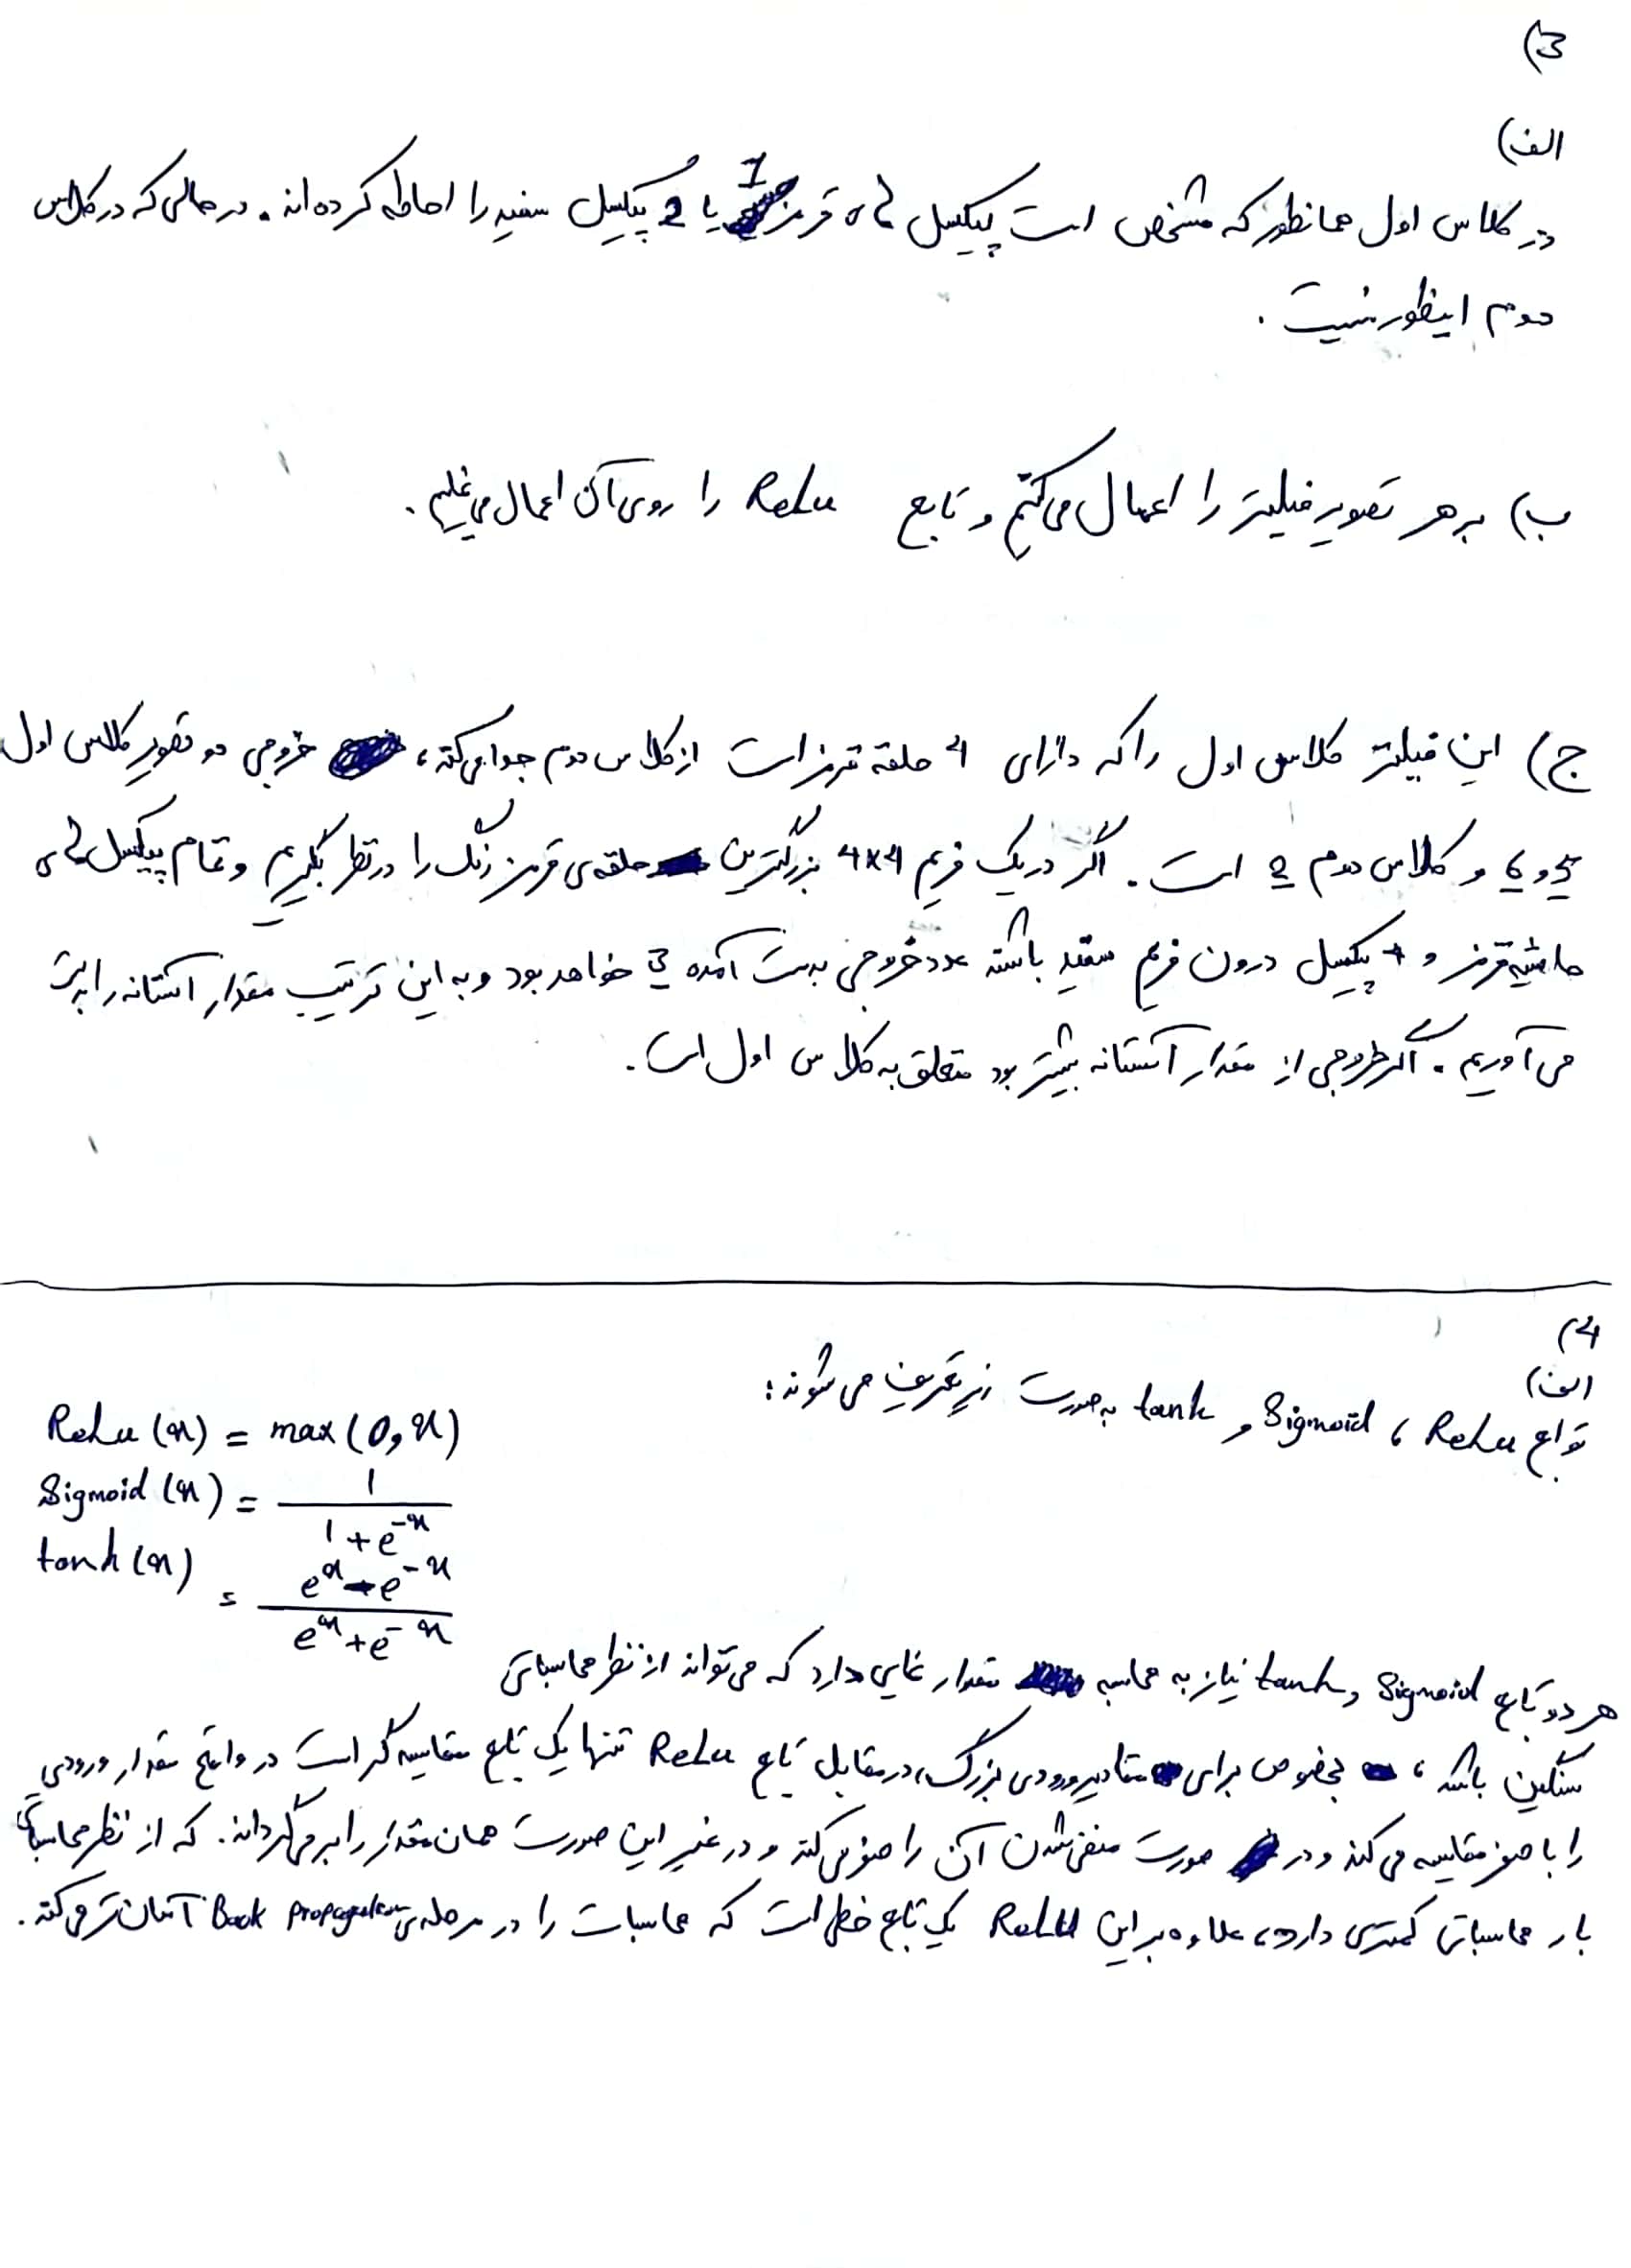 3)
الف)
در کلاس اول همانطور که مشخص است پیکسل های قرمز 1 یا 2 پیکسل سفید را احاطه کرده اند. در حالی که در کلاس
دوم اینطور نیست.
ب) بر هر تصویر فیلتر را اعمال می کنیم و تابع Relu را روی آن اعمال می نماییم.
ج) این فیلتر کلاس اول را که دارای حلقه قرمز است از کلاس دوم جدا می کند، خروجی دو تصویر کلاس اول
5 و 6 و کلاس دوم 2 است. اگر در یک فریم 4x4 بزرگترین حلقه ی قرمز رنگ را در نظر بگیریم و تمام پیکسل های
حاشیه قرمز و 4 پیکسل درون فریم سفید باشند عدد خروجی بدست آمده خواهد بود و به این ترتیب مقدار آستانه را بدست
می آوریم. اگر خروجی از مقدار آستانه بیشتر بود متعلق به کلاس اول است.
4)
الف)
توابع Relu ، Sigmoid و tanh به صورت زیر تعریف می شوند:
Relu (x) = max (0, x)
Sigmoid (x) = 1 / (1 + e^-x)
tanh (x) = (e^x - e^-x) / (e^x + e^-x)
هر دو تابع Sigmoid و tanh نیاز به محاسبه مقدار نمایی دارد که می تواند از نظر محاسباتی
سنگین باشد، بخصوص برای مقادیر ورودی بزرگ، در مقابل تابع Relu تنها یک تابع مقایسه گر است در واقع مقدار ورودی
را با صفر مقایسه می کند و در صورت منفی شدن آن را صفر می کند و در غیر این صورت همان مقدار را بر می گرداند. که از نظر محاسباتی
بار محاسباتی کمتری دارد، علاوه بر این Relu یک تابع خطی است که محاسبات را در مرحله ی Back Propagation آسان تر می کند.